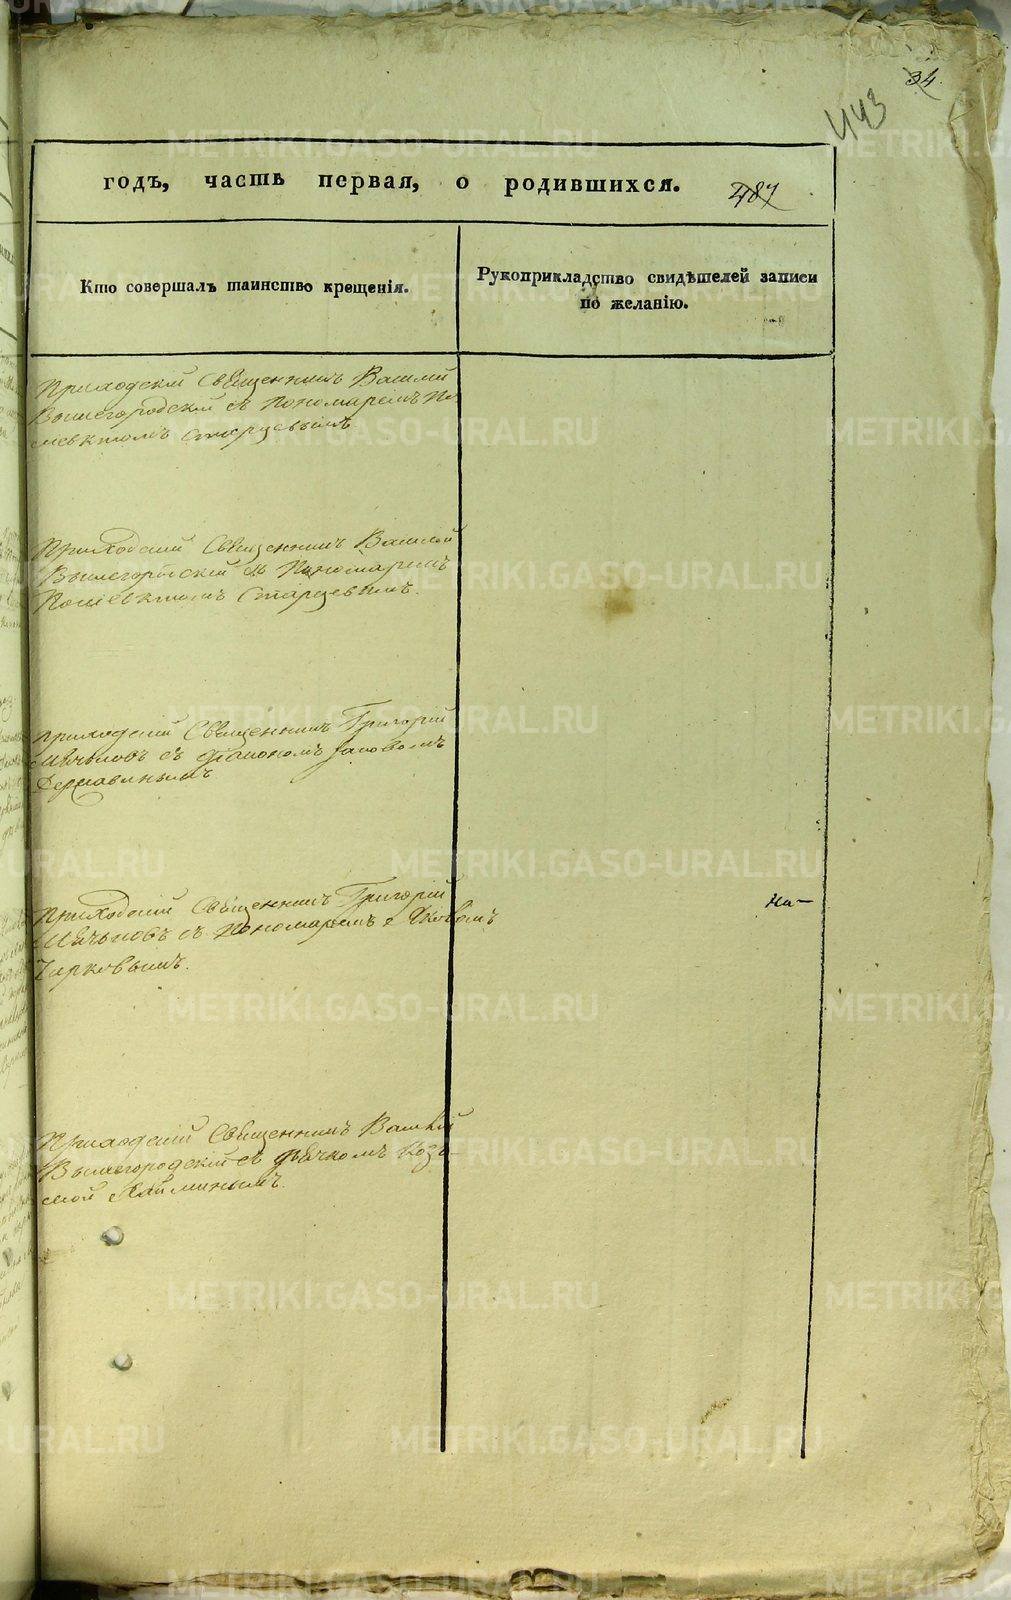 34.
443
годъ, часть первая, о родившихся.
487
Кто совершалъ таинство крещенія.
Рукоприкладство свидѣтелей записи
по желанію.
Приходскій Священникъ Василій
Вышегородской съ Пономаремъ По
лиевктомъ Старцевымъ
Приходскій Священникъ Василій
Вышегородской съ Пономаремъ
Полиевктомъ Старцевымъ.
Приходскій Священникъ Григорій
съ Дiакономъ Iаковомъ
Державинымъ
Приходскій Священникъ Григорій
съ Пономаремъ Яковомъ
Чирковымъ.
На—
Приходскій Священникъ Василій
Вышегородскій съ дьячкомъ Козь-
мой
METRIKI.GASO-URAL.RU